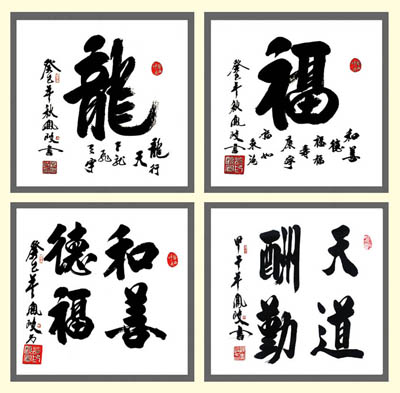 龍
龍行
天
下龍
飛
癸巳年秋鳳書
福
和善
德
福福
壽
康寧
福如
東海
癸巳年秋鳳書
和善
德福
癸巳年鳳
天道
酬勤
甲午年鳳書